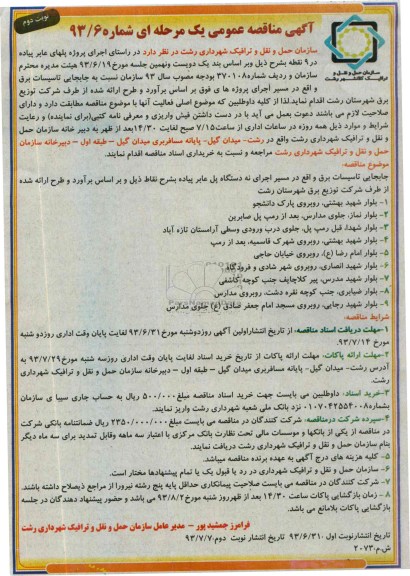 نوبت دوم
آگهی مناقصه عمومی یک مرحله ای شماره ۹۳/۶
سازمان حمل و نقل و ترافیک شهرداری رشت در نظر دارد در راستای اجرای پروژه پلهای عابر پیاده
در ۹ نقطه بشرح ذیل وبر اساس بند یک دویست ونهمین جلسه مورخ ۹۳/۶/۱۹ هیئت مدیره محترم
سازمان و ردیف شماره ۳۷۰۱۰۸ بودجه مصوب سال ۹۳ سازمان نسبت به جابجایی تاسیسات برق
و اقع در مسیر اجرای پروژه ها ی فوق بر اساس برآورد و طرح ارائه شده از طرف شرکت توزیع
برق شهرستان رشت اقدام نماید.لذا از کلیه داوطلبین که موضوع اصلی فعالیت آنها با موضوع مناقصه مطابقت دارد و دارای
صلاحیت لازم می باشند دعوت بعمل می آید با در دست داشتن فیش واریزی و معرفی نامه کتبی(برای نماینده) و رعایت
شرایط و موارد ذیل همه روزه در ساعات اداری از ساعت ۷/۱۵ صبح لغایت ۱۴/۳۰ بعد از ظهر به دبیر خانه سازمان حمل
و نقل و ترافیک شهرداری رشت واقع در رشت- میدان گیل- پایانه مسافربری میدان گیل – طبقه اول – دبیرخانه سازمان
حمل و نقل و ترافیک شهرداری رشت مراجعه و نسبت به خریداری اسناد مناقصه اقدام نمایند.
موضوع مناقصه:
جابجایی تاسیسات برق و اقع در مسیر اجرای نه دستگاه پل عابر پیاده بشرح نقاط ذیل و بر اساس برآورد و طرح ارائه شده
از طرف شرکت توزیع برق شهرستان رشت
۱- بلوار شهید بهشتی، روبروی پارک دانشجو
۲- بلوار نماز، جلوی مدارس، بعد از رمپ پل صابرین
۳- بلوار شهدا، قبل رمپ پل، جلوی درب ورودی وسطی آرامستان تازه آباد
۴- بلوار شهید بهشتی، روبروی شهرک قاسمیه، بعد از رمپ
۵- بلوار امام رضا (ع)، روبروی خیابان حاجی
۶- بلوار شهید انصاری، روبروی شهر شادی و فرودگاه
۷- بلوار شهید مدرس، پیر کلاچایف جنب کوچه کاشفی
۸- بلوار ضیابری، جنب کوچه نقره دشت، روبروی مدارس
۹- بلوار شهید رجایی، روبروی مسجد امام جعفر صادق (ع) جلوی مدارس
شرایط مناقصه:
۱-مهلت دریافت اسناد مناقصه: از تاریخ انتشاراولین آگهی روزدوشنبه مورخ ۹۳/۶/۳۱ لغایت پایان وقت اداری روزدو شنبه
مورخ ۹۳/۷/۱۴.
۲-مهلت ارائه پاکات: مهلت ارائه پاکات از تاریخ خرید اسناد لغایت پایان وقت اداری روزسه شنبه مورخ ۹۳/۷/۲۹ به
آدرس رشت- میدان گیل- پایانه مسافربری میدان گیل – طبقه اول – دبیرخانه سازمان حمل و نقل و ترافیک شهرداری
رشت
۳-خرید اسناد: داوطلبین می بایست جهت خرید اسناد مناقصه مبلغ ۵۰۰/۰۰۰ ریال به حساب جاری سیبا ی سازمان
بشماره ۰۱۰۷۰۴۲۵۵۴۰۰۸ نزد بانک ملی شعبه شهرداری رشت واریز نمایند.
۴-سپرده شرکت درمناقصه: شرکت کنندگان در مناقصه می بایست مبلغ ۲۳۵۰/۰۰۰/۰۰۰ ریال ضمانتنامه بانکی شرکت
در مناقصه از یکی از بانکها و موسسات مالی تحت نظارت بانک مرکزی با اعتبار سه ماهه وقابل تمدید برای سه ماه دیگر
بنام سازمان حمل و نقل و ترافیک شهرداری رشت دریافت نمایند.
۵- کلیه هزینه های درج آگهی به عهده برنده مناقصه میباشد.
۶- سازمان حمل و نقل و ترافیک شهرداری در رد یا قبول یک یا تمام پیشنهادها مختار است.
۷- شرکت کنندگان در مناقصه می بایست صلاحیت پیمانکاری حداقل پایه پنج رشته نیرورا از مراجع ذیصلاح داشته باشند.
۸- زمان بازگشایی پاکات ساعت ۱۴/۳۰ بعد از ظهرروز شنبه مورخ ۹۳/۸/۲ می باشد و حضور پیشنهاد دهندگان در جلسه
بازگشایی پاکات بلامانع می باشد.
فرامرز جمشید پور – مدیر عامل سازمان حمل و نقل و ترافیک شهرداری رشت
تاریخ انتشارنوبت اول ۹۳/۶/۳۱ تاریخ انتشار نوبت دوم ۹۳/۷/۷
ش.م ۲۰۷۳